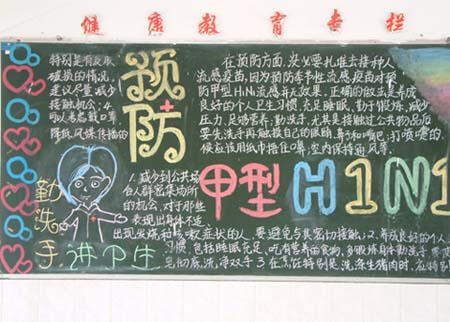 健康教育专栏
预防
特别是有皮肤
破损的情况,
建议尽量减少
接触机会;4.
可以考虑戴口罩
降低风媒传播的
在预防方面,没必要扎堆去接种人
流感疫苗,因为预防季节性流感疫苗对预
防甲型H1N1流感并无效果。正确的做法是养成
良好的个人卫生习惯,充足睡眠、勤于锻炼、减少
压力、足够营养;勤洗手,尤其是接触过公共物品后
要先洗手再触摸自己的眼睛、鼻子和嘴巴;打喷嚏的
候应该用纸巾捂住口鼻;室内保持通风等。
甲型H1N1
勤洗手
讲卫生
1.减少到公共场
合人群密集场所
的机会,对于那些
表现出身体不适、
出现发烧和咳嗽症状的人,要避免与其密切接触;2.养成良好的个人
习惯,包括睡眠充足、吃有营养的食物、多锻炼身体勤洗手,
皂彻底洗净双手3.在烹饪特别是洗涤生猪肉时,应特别